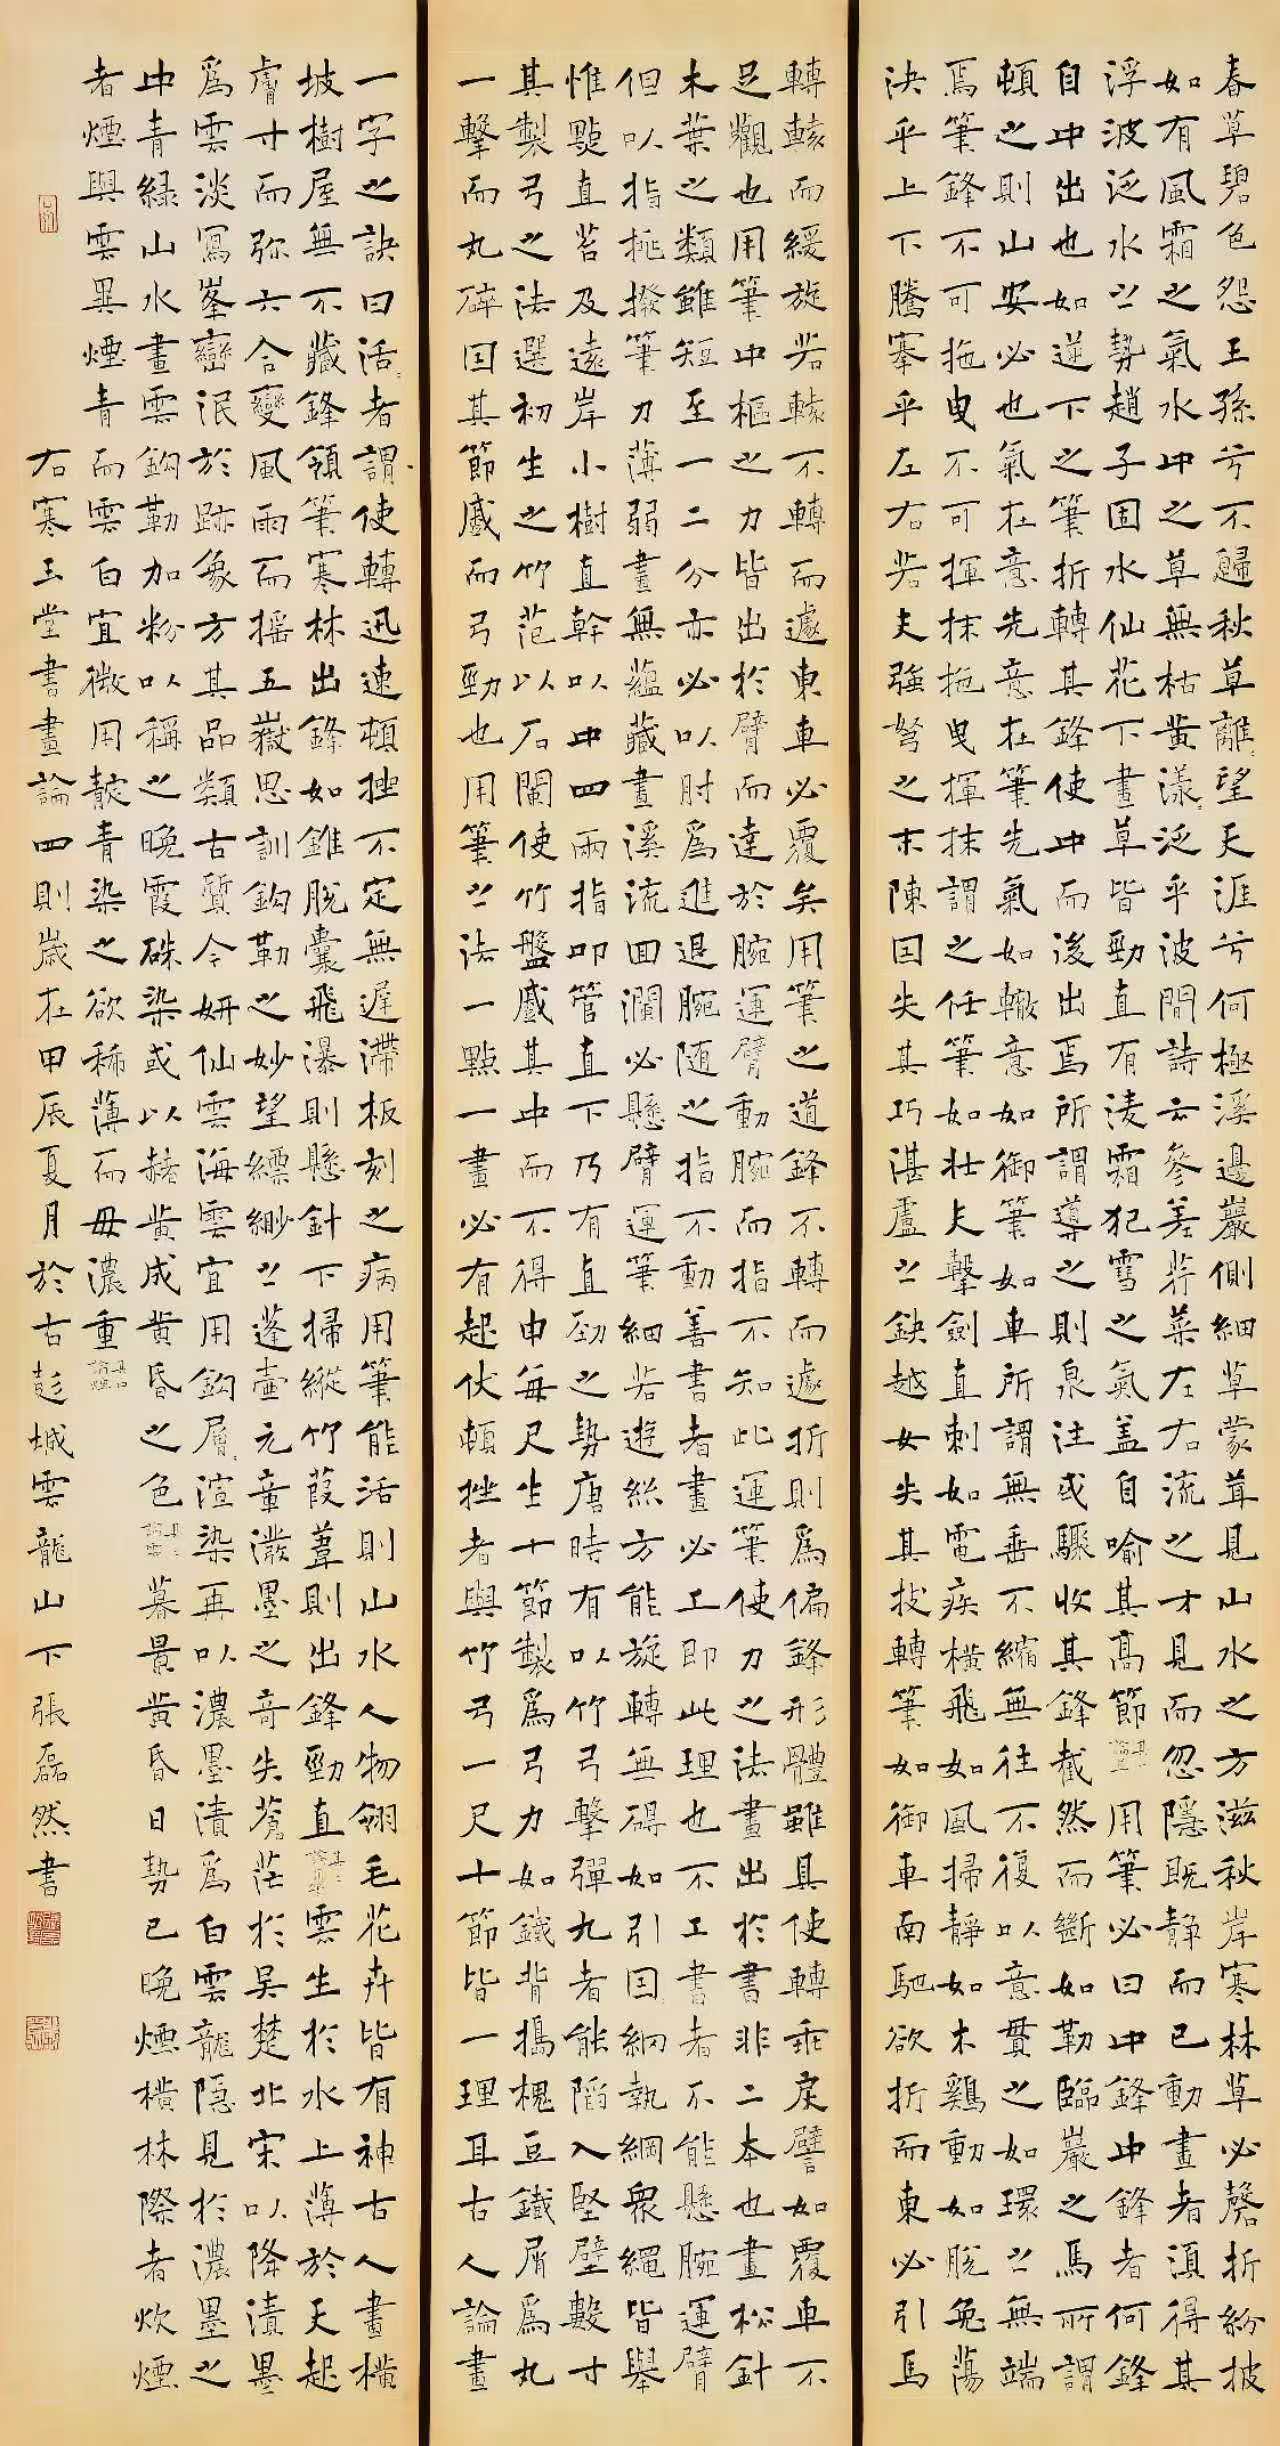 春草碧色怨王孫兮不歸秋草離〻望天涯兮何極溪邊巖側細草蒙茸見山水之方滋秋岸寒林草必磬折紛披
如有風霜之氣水中之草無枯黃漾〻泛乎波間詩云參差荇菜左右流之才見而忽隱既靜而已動畫者須得其
浮波泛水之勢趙子固水仙花下畫草皆勁直有淩霜犯雪之氣盖自喻其高節用筆必曰中鋒中鋒者何鋒
自中出也如逆下之筆折轉其鋒使中而後出焉所謂導之則泉注或驟收其鋒截然而斷如勒臨巖之馬所謂
頓之則山安必也氣在意先意在筆先氣如轍意如御筆如車所謂無垂不縮無往不復以意貫之如環之無端
焉筆鋒不可拖曳不可揮抹拖曳揮抹謂之任筆如壯夫擊劍直刺如電疾橫飛如風掃靜如木鷄動如脫兔蕩
決乎上下騰搴乎左右若夫強弩之末陳因失其巧湛盧之鈌越女失其技轉筆如御車南馳欲折而東必引馬
轉轅而緩旋若轅不轉而遽東車必覆矣用筆之道鋒不轉而遽折則爲偏鋒形體雖具使轉乖戾譬如覆車不
足觀也用筆中樞之力皆出於臂而達於腕運臂動腕而指不知此運筆使力之法畫出於書非二本也畫松針
木葉之類雖短至一二分亦必以肘爲進退腕随之指不動善書者畫必工即此理也不工書者不能懸腕運臂
但以指挑撥筆力薄弱畫無蘊藏畫溪流回瀾必懸臂運筆細若遊絲方能旋轉無碍如引因綱執綱衆繩皆舉
惟點直苔及遠岸小樹直幹以中四兩指叩管直下乃有直勁之勢唐時有以竹弓擊彈九者能䧟入堅壁數寸
其製弓之法選初生之竹范以石闌使竹盤蹙其中而不得申每尺生十節製爲弓力如鐵背搗槐豆鐵屑爲丸
一擊而丸碎因其節蹙而弓勁也用筆之法一點一畫必有起伏頓挫者與竹弓一尺十節皆一理耳古人論畫
一字之訣曰活〻者謂使轉迅速頓挫不定無遲滯板刻之病用筆能活則山水人物翎毛花卉皆有神古人畫橫
坡樹屋無不藏鋒領筆寒林出鋒如錐脫囊飛瀑則懸針下掃縱竹葭葦則出鋒勁直雲生於水上薄於天起
膚寸而弥六合變風雨而搖五嶽思訓鈎勒之妙望縹緲之蓬壺元章潑墨之奇失蒼茫於吴楚北宋以降漬墨
爲雲淡寫峯巒泯於跡象方其品類古質今妍仙雲海雲宜用鈎屑渲染再以濃墨漬爲白雲龍隱見於濃墨之
中青緑山水畫雲鈎勒加粉以稱之晚霞硃染或以赭黃成黃昏之色暮景黃昏日勢已晚煙橫林際者炊煙
者煙與雲異煙青而雲白宜微用靛青染之欲稀薄而毋濃重
右寒玉堂書畫論四則歲在甲辰夏月於古彭城雲龍山下張磊然書